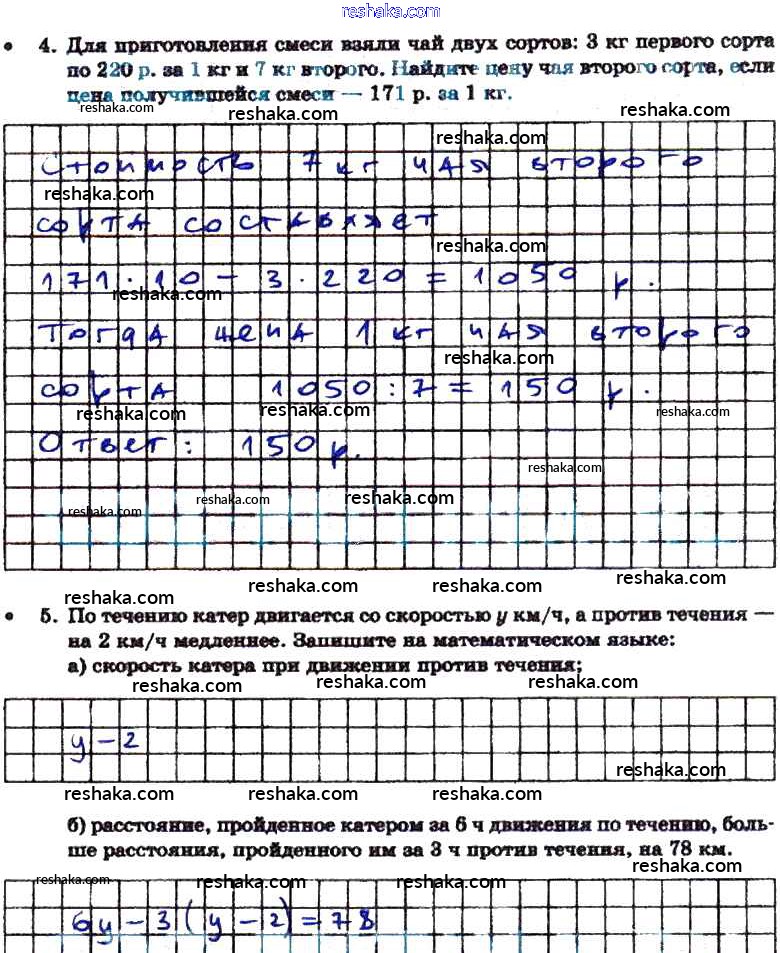 reshaka.com
• 4. Для приготовления смеси взяли чай двух сортов: 3 кг первого сорта
по 220 р. за 1 кг и 7 кг второго. Найдите цену чая второго сорта, если
цена получившейся смеси — 171 р. за 1 кг.
reshaka.com reshaka.com
reshaka.com
Стоимость 7 кг чая второго
reshaka.com
сорта составляет
reshaka.com
171 · 10 - 3 · 220 = 1050 р.
reshaka.com
Тогда цена 1 кг чая второго
reshaka.com
сорта 1050 : 7 = 150 р.
reshaka.com reshaka.com reshaka.com
Ответ: 150 р.
reshaka.com
reshaka.com reshaka.com
reshaka.com
reshaka.com reshaka.com reshaka.com
• 5. По течению катер двигается со скоростью y км/ч, а против течения —
на 2 км/ч медленнее. Запишите на математическом языке:
а) скорость катера при движении против течения;
reshaka.com reshaka.com reshaka.com
y - 2
reshaka.com
reshaka.com reshaka.com reshaka.com
б) расстояние, пройденное катером за 6 ч движения по течению, боль-
ше расстояния, пройденного им за 3 ч против течения, на 78 км.
reshaka.com
reshaka.com reshaka.com reshaka.com
6y - 3(y - 2) = 78